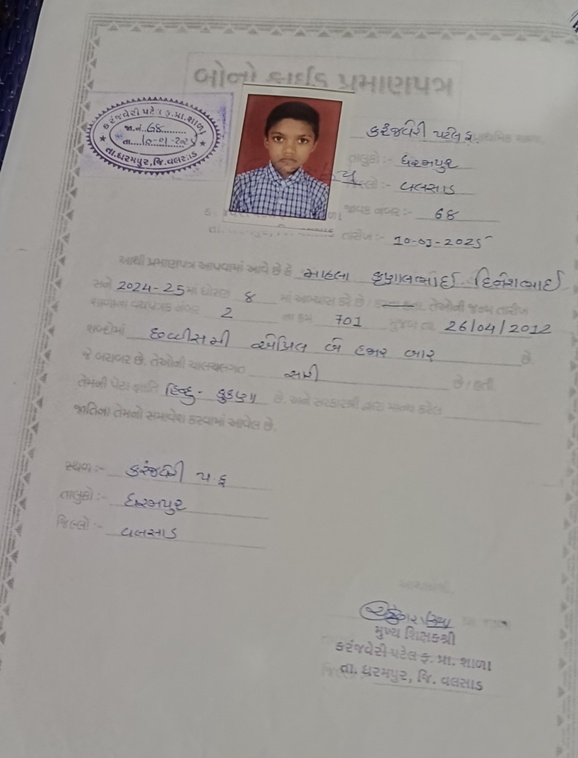 બોનો ફાઇડ પ્રમાણપત્ર
કરંજવેરી પટેલ ફ.પ્રા.શાળા
જા.નં. 68
તા. 10-01-2025
તા.ધરમપુર, જિ.વલસાડ
કરંજવેરી પટેલ ફ.
તાલુકો :- ધરમપુર
જિલ્લો :- વલસાડ
જાવક નંબર :- 68
તારીખ :- 10-01-2025
આથી પ્રમાણપત્ર આપવામાં આવે છે કે માહલા કૃણાલભાઈ દિનેશભાઈ
સને 2024-25 માં ધોરણ 8 માં અભ્યાસ કરે છે તેઓની જન્મ તારીખ
શાળાના વયપત્રક નંબર 2 ના ક્રમ 701 મુજબ તા. 26/04/2012
શબ્દોમાં છવ્વીસમી એપ્રિલ બે હજાર બાર છે
જે બરાબર છે. તેઓની ચાલચલગત સારી છે / હતી
તેમની પેટા જ્ઞાતિ હિન્દુ - કુકણા છે. અને સરકારશ્રી દ્વારા માન્ય કરેલ
જાતિમાં તેમનો સમાવેશ કરવામાં આવેલ છે.
સ્થળ :- કરંજવેરી પ.ફ
તાલુકો :- ધરમપુર
જિલ્લો :- વલસાડ
મુખ્ય શિક્ષકશ્રી
કરંજવેરી પટેલ ફ. પ્રા. શાળા
તા. ધરમપુર, જિ. વલસાડ